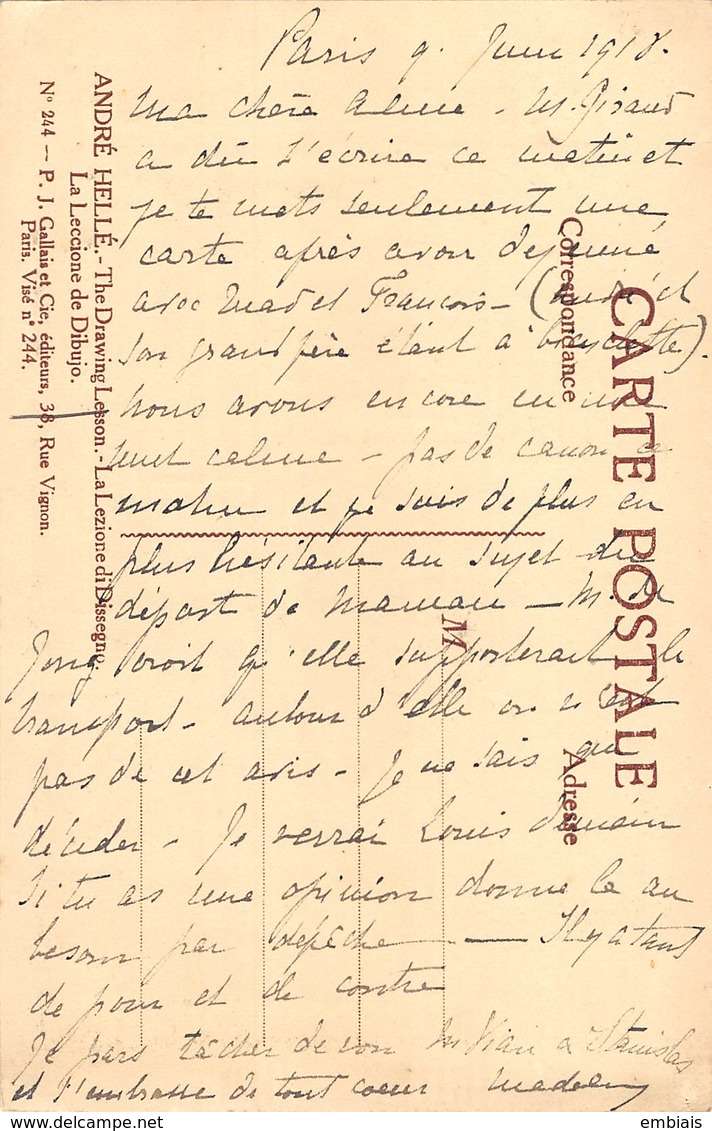 Paris 9. Juin 1918.
Ma chère Aline - M. Giraud
a dû t'écrire ce matin et
je te mets seulement une
carte après avoir dejeuné
avec Mad et Francois - ( et
son grand père étant à bicyclette).
Nous avons encore eu une
nuit calme - pas de canon ce
matin et je suis de plus en
plus hésitante au sujet du
départ de Maman - M. de
Jong croit qu'elle supporterait le
transport - autour d'elle on n'est
pas de cet avis - Je ne sais que
décider - Je verrai Louis demain
Si tu as une opinion donne la au
besoin par dépêche - Il y a tant
de pour et de contre
Je pars tâcher de voir M. Viau a Stanislas
et t'embrasse de tout coeur Madeleine
CARTE POSTALE
Correspondance
Adresse
M
ANDRÉ HELLÉ. - The Drawing Lesson. - La Lezione di Dissegno.
La Leccione de Dibujo.
N° 244 — P. J. Gallais et Cie, éditeurs, 38, Rue Vignon.
Paris. Visé n° 244.
embiais